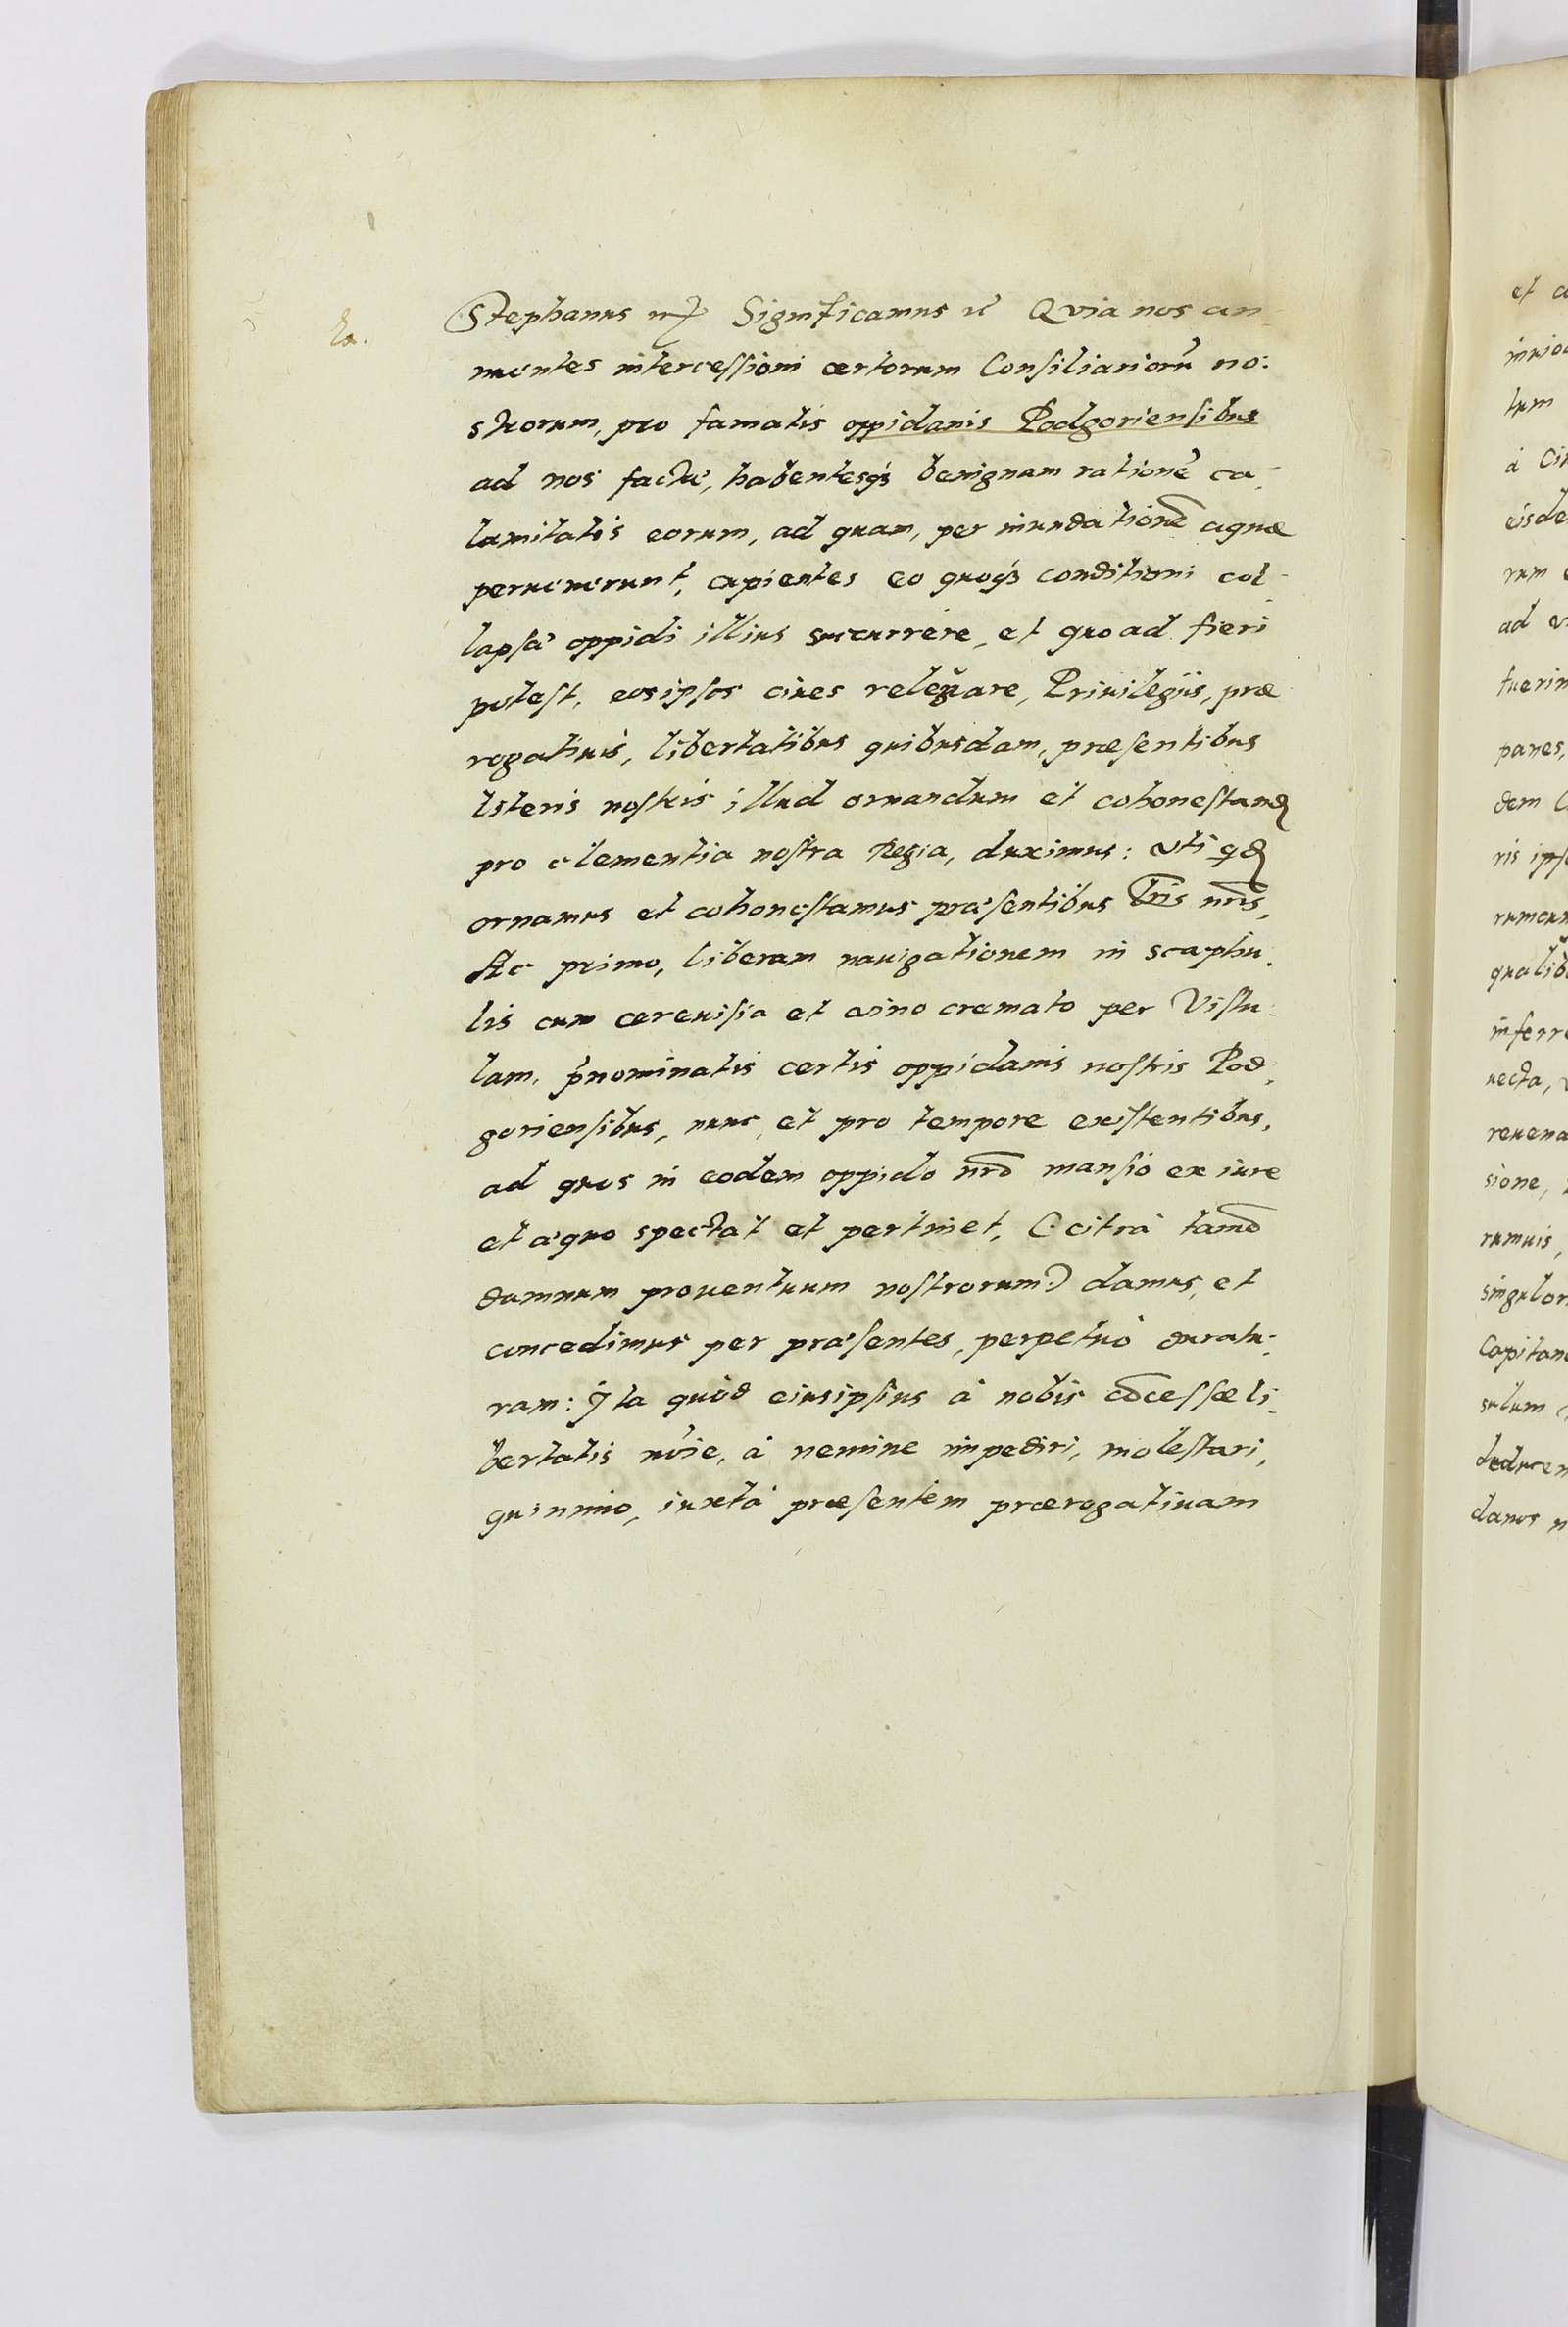 Stephanus Significamus Quia nos an
nuentes intercessioni certorum Consiliariorū no:
strorum, pro famatis oppidanis Podgoriensibus
ad nos factæ, habentesq3 benignam rationē ca-
lamitatis eorum, ad quam, per inundationē aquæ
peruenerunt, cupientes eo quoq3 conditioni col-
lapsæ oppidi illius succurrere, et quo ad fieri
potest, eos ipsos ciues releuare, Priuilegijs, præ
rogatiuis, libertatibus quibusdam, præsentibus
literis nostris illud ornandum et cohonestand
pro clementia nostra Regia, duximus: vti qd
ornamus et cohonestamus præsentibus lris nris,
Ac primo, liberam nauigationem in scaphu-
lis cum cereuisia et vino cremato per Vistu-
lam, pnominatis certis oppidanis nostris Pod-
goriensibus, nunc, et pro tempore existentibus,
ad quos in eodem oppido nro mansio ex iure
et æquo spectat et pertinet, (citrà tamē
damnum prouentuum nostrorum) damus, et
concedimus per præsentes, perpetuò duratu-
ram: Ita quòd eiusipsius à nobis cōcessæ li-
bertatis à nemine impediri, molestari,
quinimo, iuxtà præsentem prærogatiuam
et
tum
à
eisde
rum
ad
tuerin
panes,
dem
ris ips
rumcun
qualib
inferr
uecta,
sione,
rumuis,
singulor
Capitan
deducen
danos